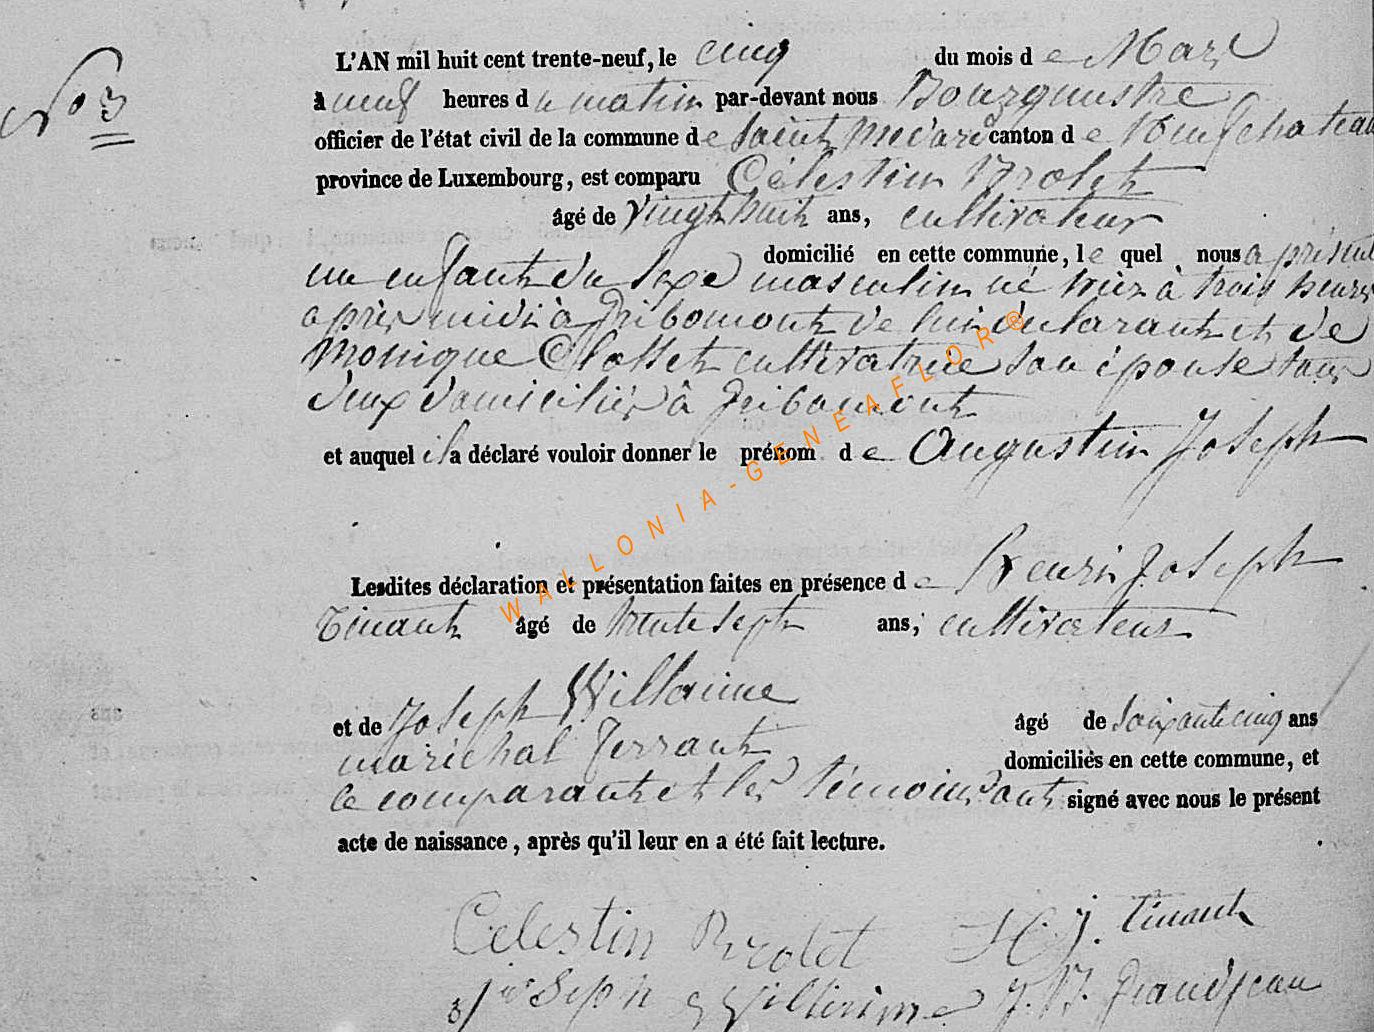 No 3
L'AN mil huit cent trente-neuf, le cinq du mois de Mars
à neuf heures du matin par-devant nous Bourgmestre
officier de l'état civil de la commune de Saint Médard canton de Neufchateau
province de Luxembourg, est comparu Célestin Brolet
âgé de vingt huit ans, cultivateur
domicilié en cette commune, lequel nous a présenté
un enfant du sexe masculin né hier à trois heures
après midi à Gribomont de lui déclarant et de
Monique Classet cultivatrice son épouse tous
deux domiciliés à Gribomont
et auquel il a déclaré vouloir donner le prénom de Augustin Joseph
Lesdites déclaration et présentation faites en présence de Henri Joseph
Tinant âgé de trente sept ans, cultivateur
et de Joseph Willaime âgé de soixante cinq ans
maréchal ferrant domiciliés en cette commune, et
le comparant et les témoins ont signé avec nous le présent
acte de naissance, après qu'il leur en a été fait lecture.
Celestin Brolet H. J. Tinant
Joseph Willaime J. B. Grandjean
WALLONIA-GENEAFLOR®